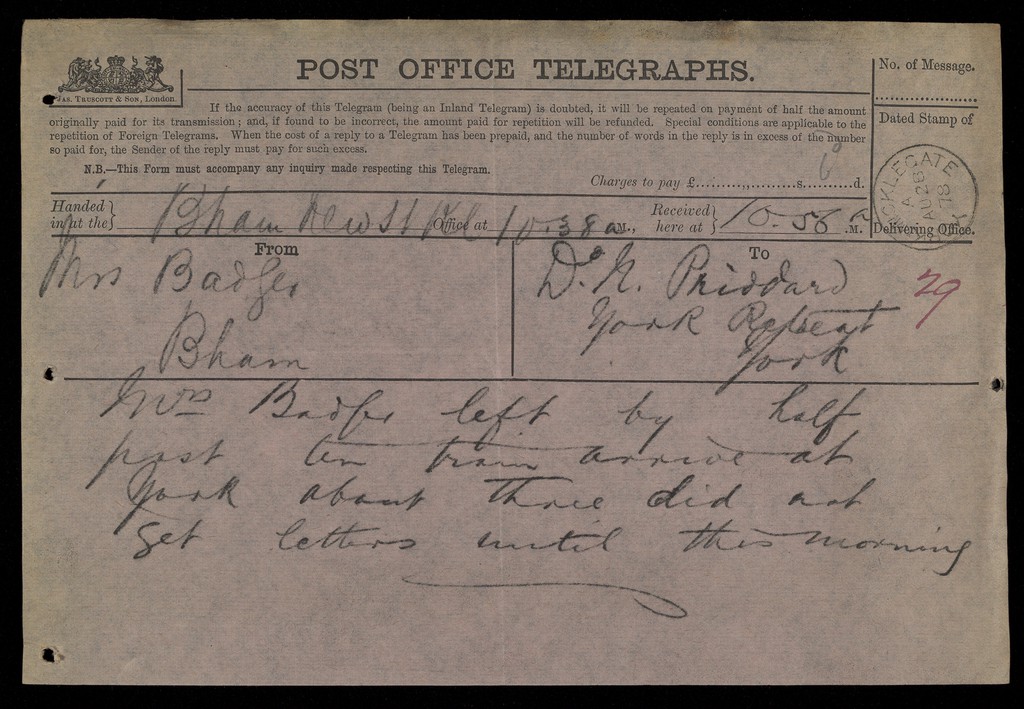 POST OFFICE TELEGRAPHS.
JAS. TRUSCOTT & SON, London.
No. of Message.
If the accuracy of this Telegram (being an Inland Telegram) is doubted, it will be repeated on payment of half the amount
originally paid for its transmission; and, if found to be incorrect, the amount paid for repetition will be refunded. Special conditions are applicable to the
repetition of Foreign Telegrams. When the cost of a reply to a Telegram has been prepaid, and the number of words in the reply is in excess of the number
so paid for, the Sender of the reply must pay for such excess.
N.B.—This Form must accompany any inquiry made respecting this Telegram.
Charges to pay £ s. 6 d.
Dated Stamp of
MICKLEGATE
A
AU 26
78
YORK
Delivering Office.
Handed in at the Bham New St Office at 10.38 a M., Received here at 10.56 a .M.
From
Mrs Badger
Bham
To
Dr. N. Priddard
York Retreat
York
29
Mrs Badger left by half
past ten train arrive at
York about three did not
get letters until this morning